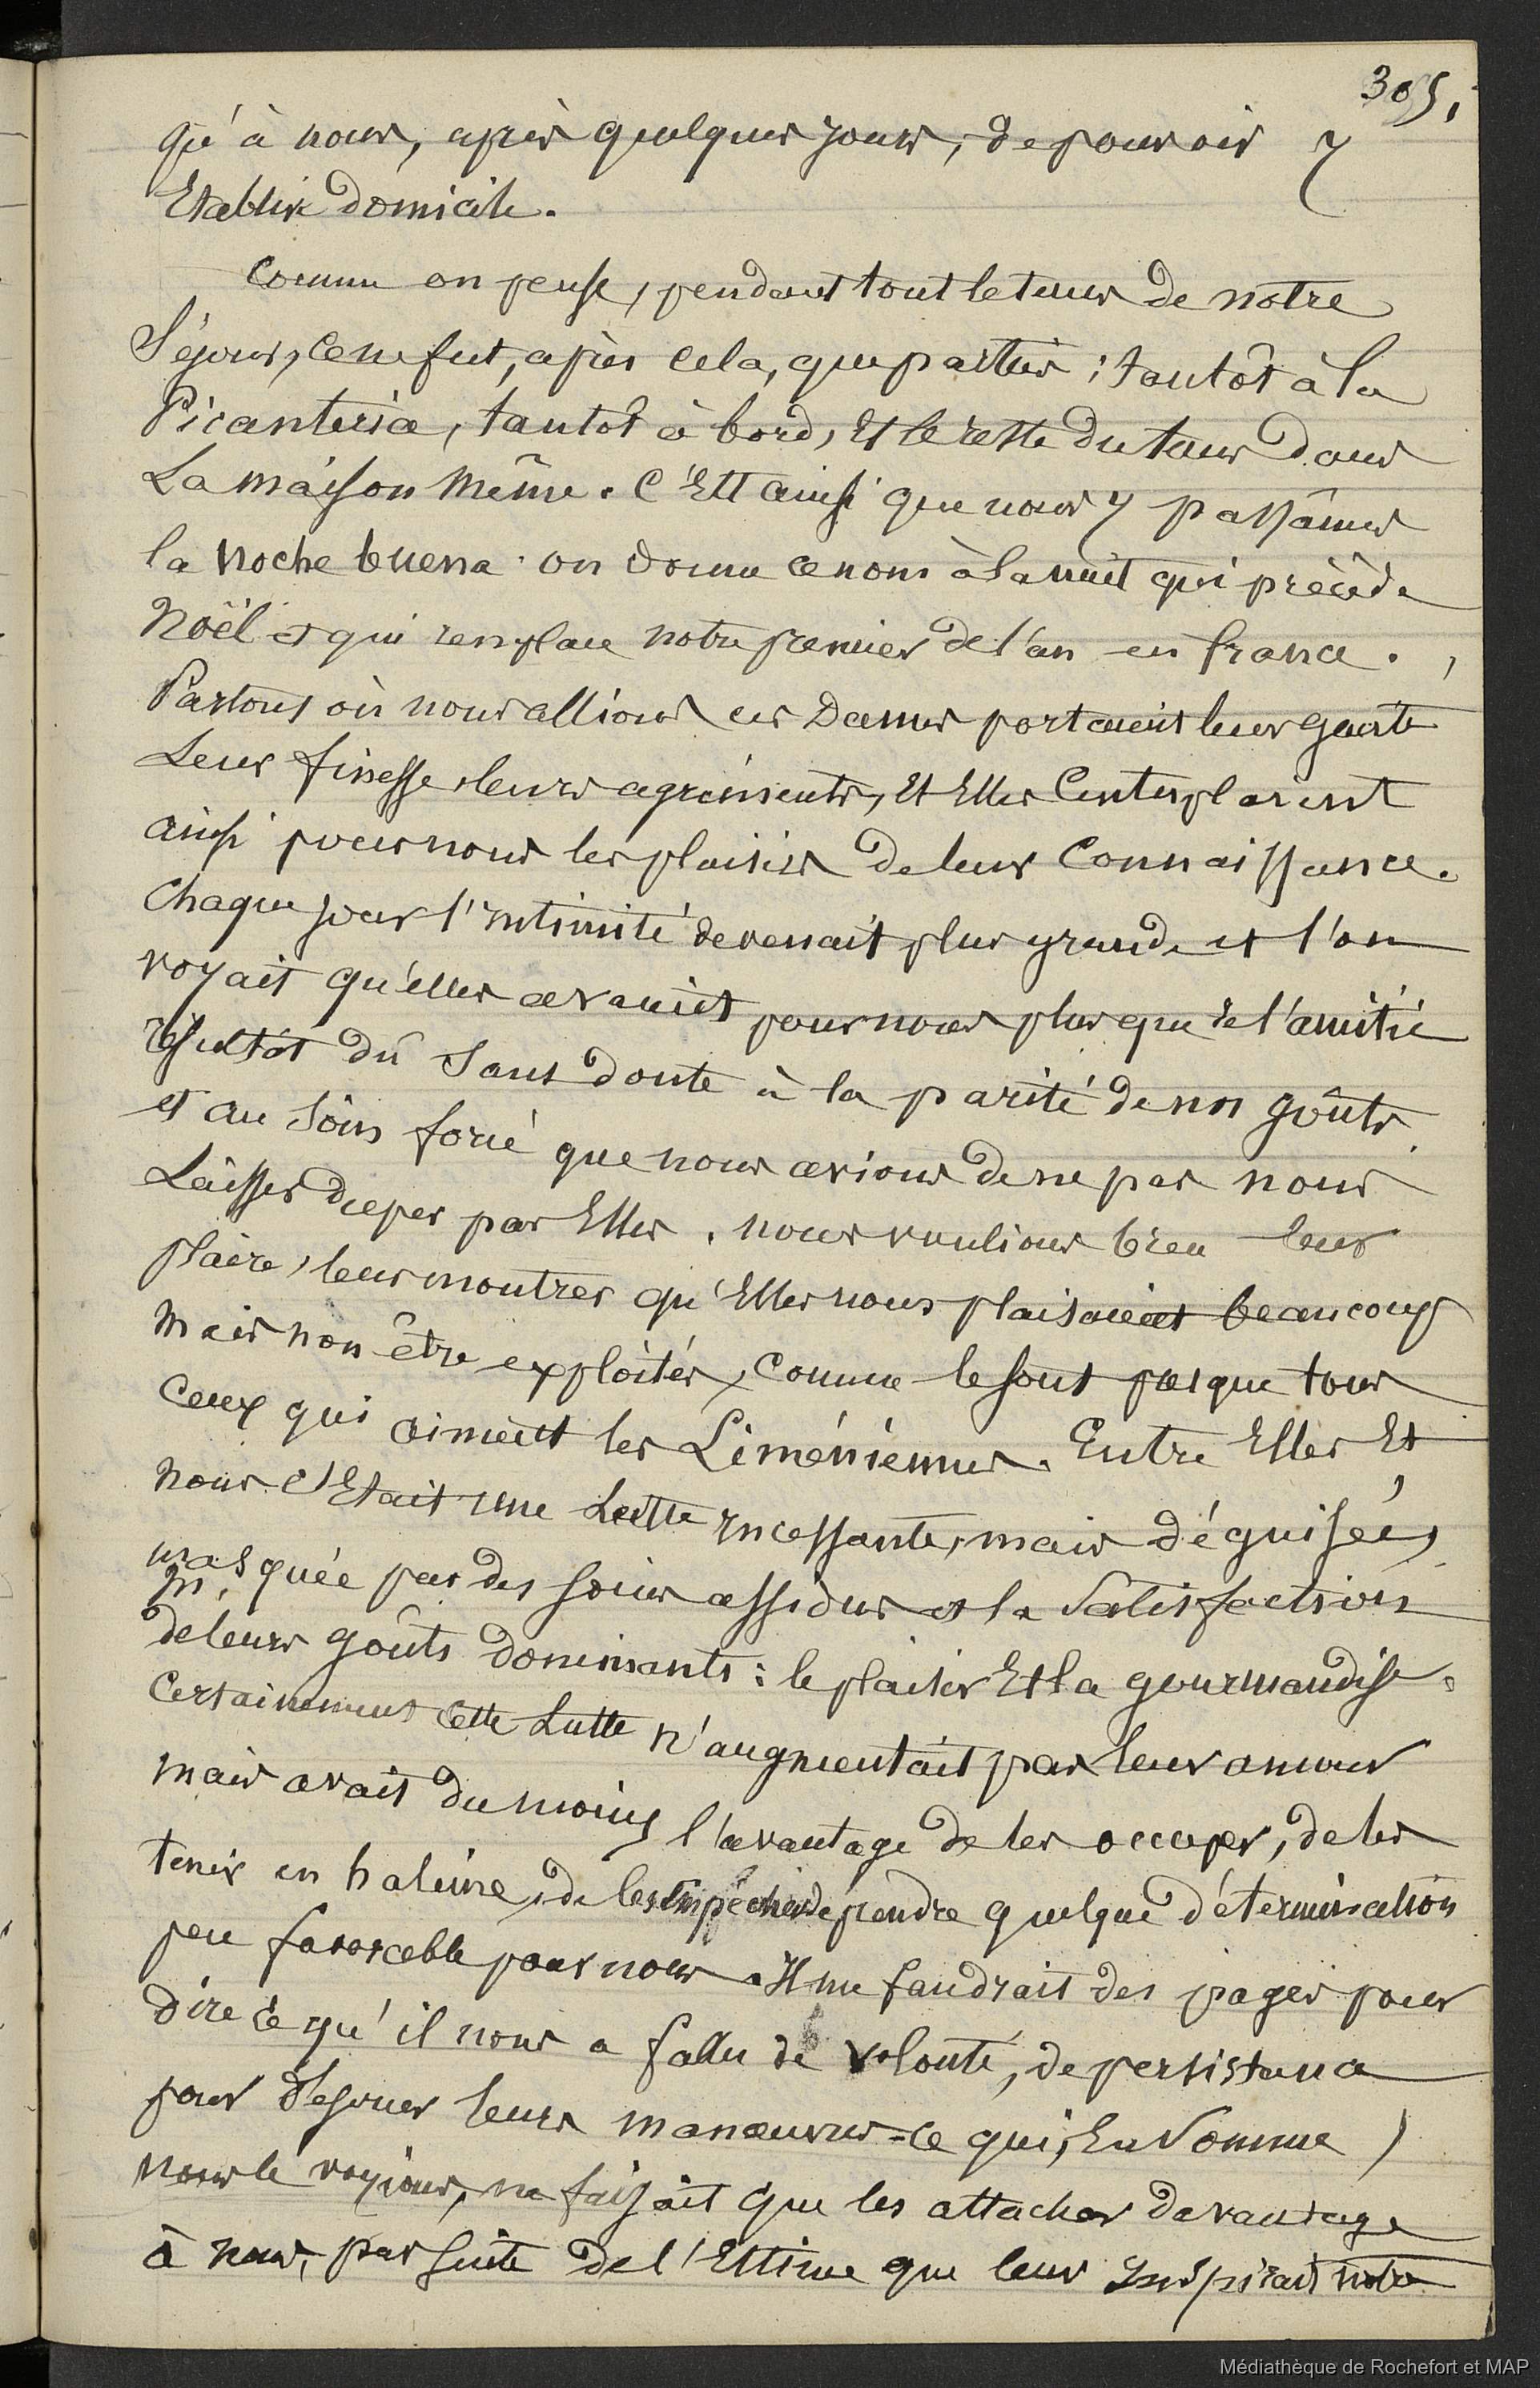 305,
qu'à nous, après quelques jours, de pouvoir y
Etablir domicile.
Comme on pense, pendant tout le tems de notre
Séjour, ce ne fut, après cela, que parties; tantôt à la
Picanteria, tantôt à bord, Et le reste du tems dans
La maison même. C'Est ainsi que nous y passâmes
la Noche buena. on donne ce nom à la nuit qui précède
Noël et qui remplace notre premier de l'an en france.
Partout où nous allions ces Dames portaient leur gaité
Leur finesse, leurs agréments, Et Elles Centuplaient
ainsi pour nous les plaisirs de leur Connaissance.
Chaque jour l'Intimité devenait plus grande et l'on
voyait qu'elles avaient pour nous plus que de l'amitié
résultat dû Sans doute à la parité de nos goûts
et au Soin forcé que nous avions de ne pas nous
Laisser duper par Elles. nous voulions bien leur
plaire, leur montrer qu'Elles nous plaisaient beaucoup
Mais non être exploités, Comme le sont presque tous
Ceux qui aiment les Liméniennes. Entre Elles Et
nous c'Etait une Lutte Incessante, mais déguisée,
masquée par des soins assidus et la Satisfaction
de leurs goûts dominants: le plaisir Et la gourmandise.
Certainement Cette Lutte n'augmentait pas leur amour
mais avait du moins l'avantage de les occuper, de les
tenir en haleine, de les Empêcher de prendre quelque détermination
peu favorable pour nous. Il me faudrait des pages pour
dire ce qu'il nous a fallu de volonté, de persistance
pour déjouer leurs manœuvres - ce qui, En Somme,
nous le voyions, ne faisait que les attacher davantage
à nous, par suite de l'Estime que leur Inspirait notre
Médiathèque de Rochefort et MAP